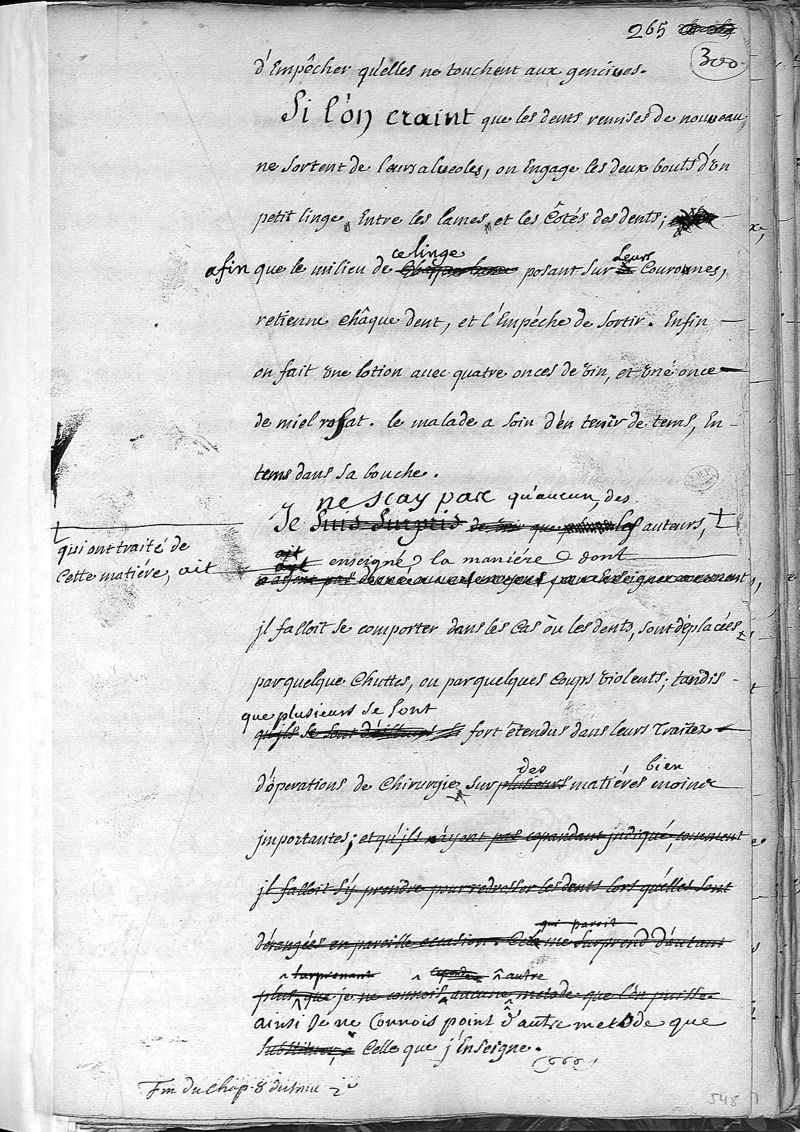 265
300.
d'Empêcher qu'elles ne touchent aux gencives.
Si l'on craint que les dents remises de nouveau,
ne sortent de leurs alveoles, on Engage les deux bouts d'un
petit linge Entre les lames et les Côtés des dents;
ce linge Leurs
afin que le milieu de posant sur Couronnes,
retienne châque dent, et l'Empéche de sortir. Enfin
on fait une lotion avec quatre onces de vin, et une once
de miel rosat. le malade a soin d'en tenir de tems, En
tems dans sa bouche.
ne sçay pas qu'aucun, des
Je suis surpris de voir que les auteurs,
qui ont traité de
Cette matiére, ait
ait
ayt enseigné, la maniére dont
jl falloit se comporter dans les Cas où les dents, sont déplacées
par quelque Chuttes, ou par quelques Coups violents; tandis
que plusieurs se sont
qu'ils se sont d'ailleurs fort étendus dans leurs Traités
des bien
d'óperations de Chirurgie sur plusieurs matiéres moins
jmportantes; et qu'ils n'ayent pas cependant jndiqué, comment
jl falloit s'y prendre pour redresser les dents lors qu'elles sont
qui paroit
dérangées en pareille occasion. Cela me surprend d'autant
surprenant autre
plus que je ne connois aucune metode que l'on puisse
ainsi Je ne Connois point d'autre metode que
substituer, à Celle que j'Enseigne.
Fin du Chap. 8 du
548